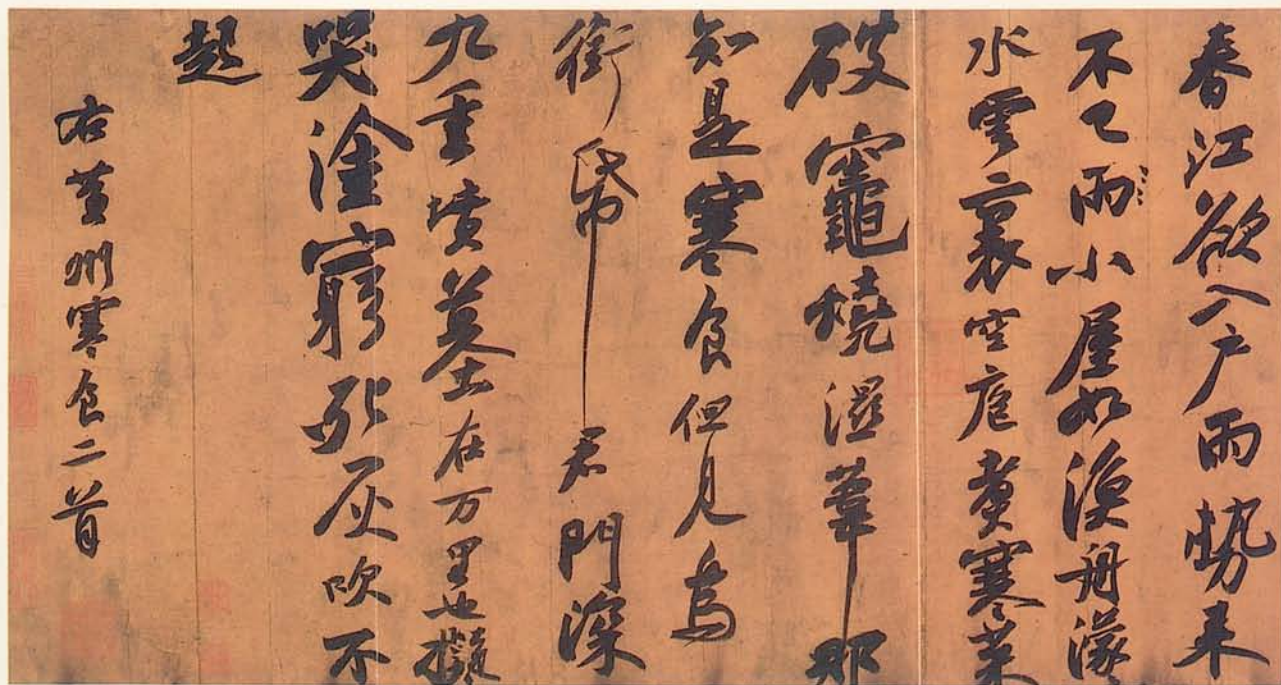 春江欲入户雨勢来
不已雨小屋如漁舟濛々
水雲裏空庖煮寒菜
破竈燒濕葦那
知是寒食但見烏
銜帋君門深
九重墳墓在万里也擬
哭塗窮死灰吹不
起
右黄州寒食二首